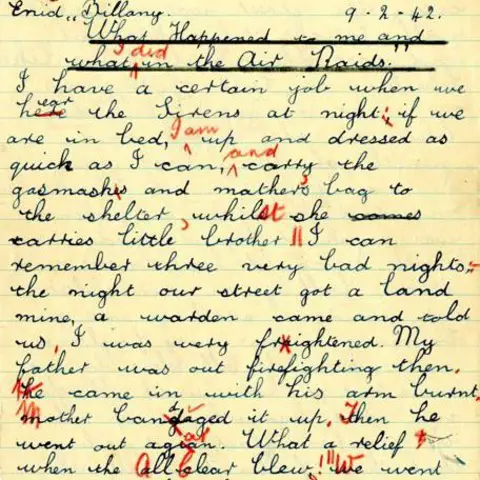 Enid Billany. 9-2-42.
What Happened to me and
what I did in the Air Raids.
I have a certain job when we
hear the Sirens at night; if we
are in bed, I am up and dressed as
quick as I can, and carry the
gasmasks and mother's bag to
the shelter, whilst she comes
carries little brother || I can
remember three very bad nights;-
the night our street got a land
mine, a warden came and told
us, I was very frightened. My
father was out firefighting then.
He came in with his arm burnt,
Mother bandaged it up. Then he
went out again. What a relief
when the All Clear blew! || We went